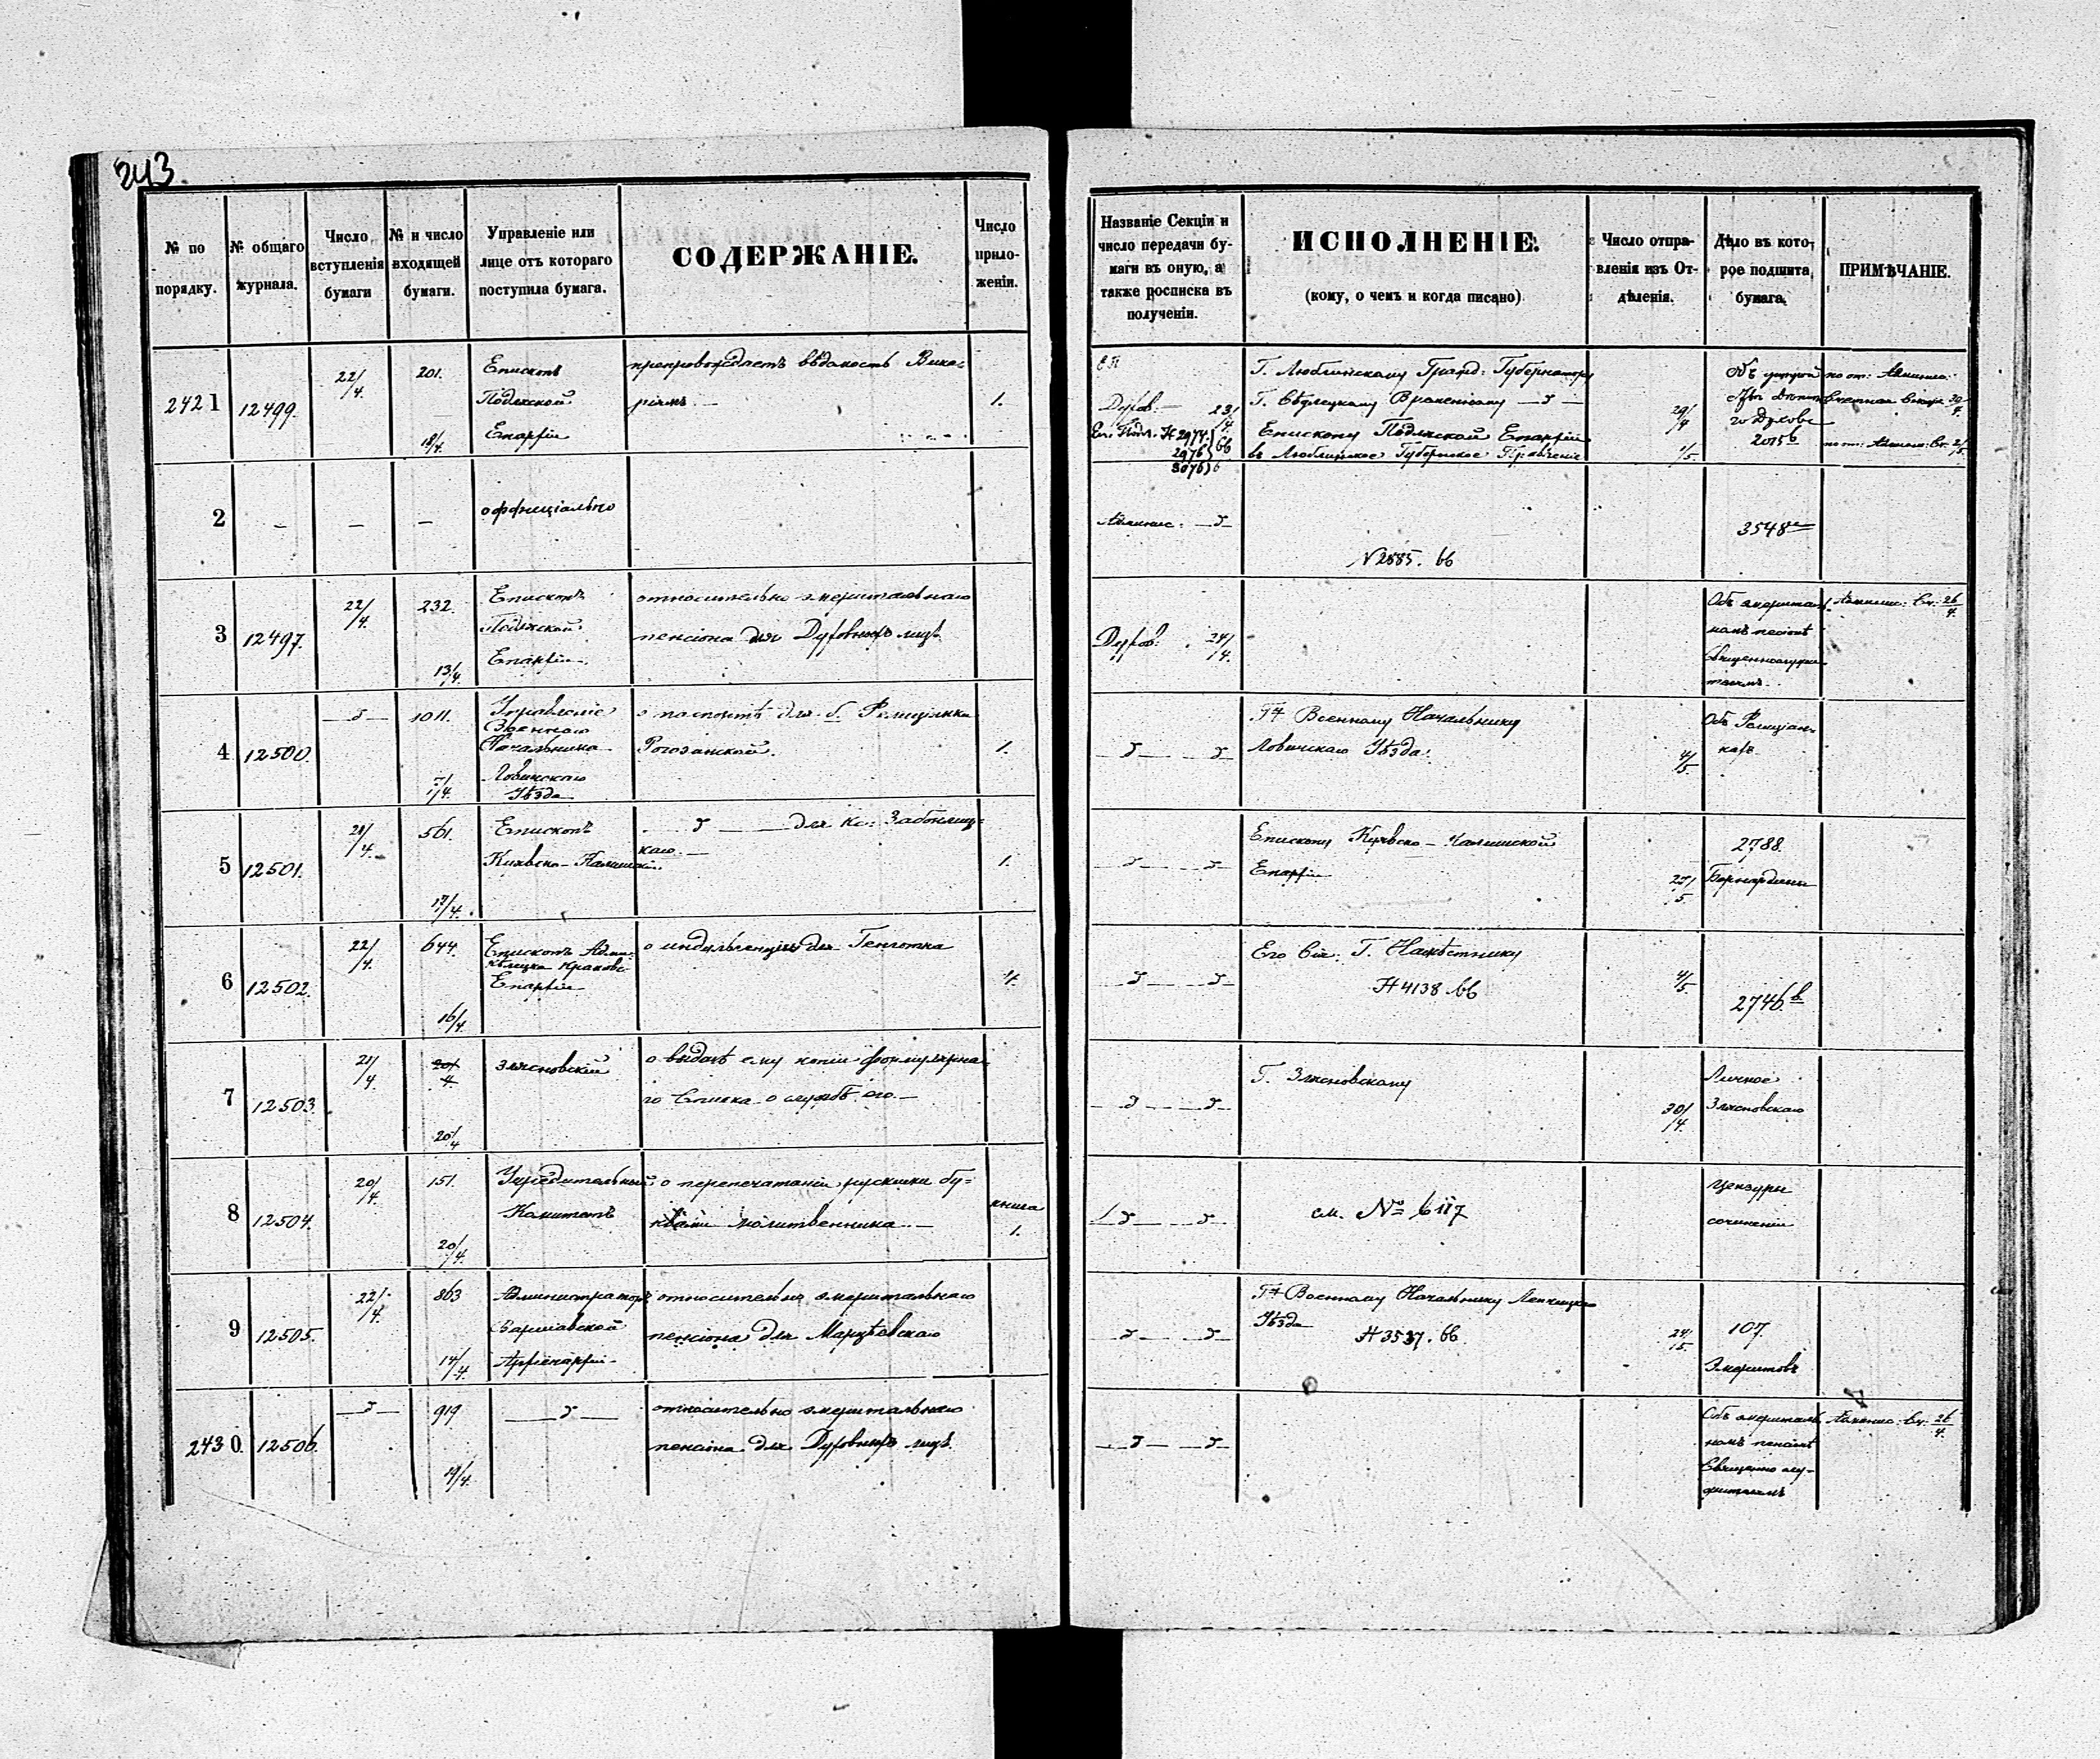 243
№ по
порядку.
№ общаго
журнала.
Число
вступленія
бумаги
№ и число
входящей
бумаги.
Управленіе или
лице отъ котораго
поступила бумага.
СОДЕРЖАНІЕ.
Число
прило-
женіи.
Названіе Секціи и
число передачи бу-
маги въ оную, а
также росписка въ
полученіи.
ИСПОЛНЕНІЕ.
(кому, о чемъ и когда писано)
Число отпра-
вленія изъ От-
дѣленія.
Дѣло въ кото-
рое подшита
бумага.
ПРИМѢЧАНІЕ.
2421
12499.
22/4.
201.
18/4.
Епископъ
Подляской
Епархіи
препровождаетъ вѣдомость Вика-
ріямъ. —
1.
Духов. — 23/4
2976
3076
66
Г. Люблинскому Гражд: Губернатору
Г. Сѣдлецкому Временному — " —
Епископу Подляской Епархіи
въ Люблинское Губернское Правленіе
29/4
1/5.
2015б
2
—
—
—
оффиціально
Админис: — " —
N 2885. 66
3548
3
12497.
22/4.
232.
13/4.
Епископъ
Подляской
Епархіи.
относительно эмеритальнаго
пенсіона для Духовныхъ лицъ
Духов: 24/4.
Объ эмериталь
номъ пенсіонѣ
Админис: Сч: 26/4.
4
12500.
— " —
1011.
17/4.
Управленіе
Военнаго
Начальника
Ловичскаго
Уѣзда
о паспортѣ для б. Фелиціянки
Рогозинской.
1.
— " — — " —
Гну Военному Начальнику
Ловичскаго Уѣзда.
4/5.
Объ Фелиціан-
кахъ
5
12501.
21/4.
561.
17/4.
Епископъ
Куявско-Калишскій.
— " — для Кс: Заблонц-
каго. —
1.
— " — — " —
Епископу Куявско-Калишской
Епархіи
27/5
2788.
Бернардины
6
12502.
22/4.
644.
16/4.
Епископъ Адми:
Кѣлецко Краковс:
Епархіи
о индульгенціи для
4.
— " — — " —
Его Сія: Г. Намѣстнику
N 4138. 66
4/5.
2746 в
7
12503.
21/4.
20/4
20/4
Злясновскій
о выдачѣ ему копіи формулярна-
го Списка о службѣ его. —
— " — — " —
Г. Злясновскому
30/4.
Личное
Злясновскаго
8
12504.
20/4.
151.
20/4.
Учредительный
Комитетъ
о перепечатаніи русскими бу-
квами молитвенника. —
книга
1.
— " — — " —
см. № 6117
цензуры
сочиненій
9
12505.
22/4.
863
14/4.
Администраторъ
Варшавской
Архіепархіи
относительно эмеритальнаго
пенсіона для
— " — — " —
Гну Военному Начальнику Ленчицкаго
Уѣзда
N 3537. 66
24/5.
107.
Эмеритовъ
2430.
12506.
— " —
919
19/4.
— " —
относительно эмеритальнаго
пенсіона для Духовныхъ лицъ.
— " — — " —
Объ эмериталь
номъ пенсіонѣ
Священно слу-
жителямъ
Админис: Сч: 26/4.